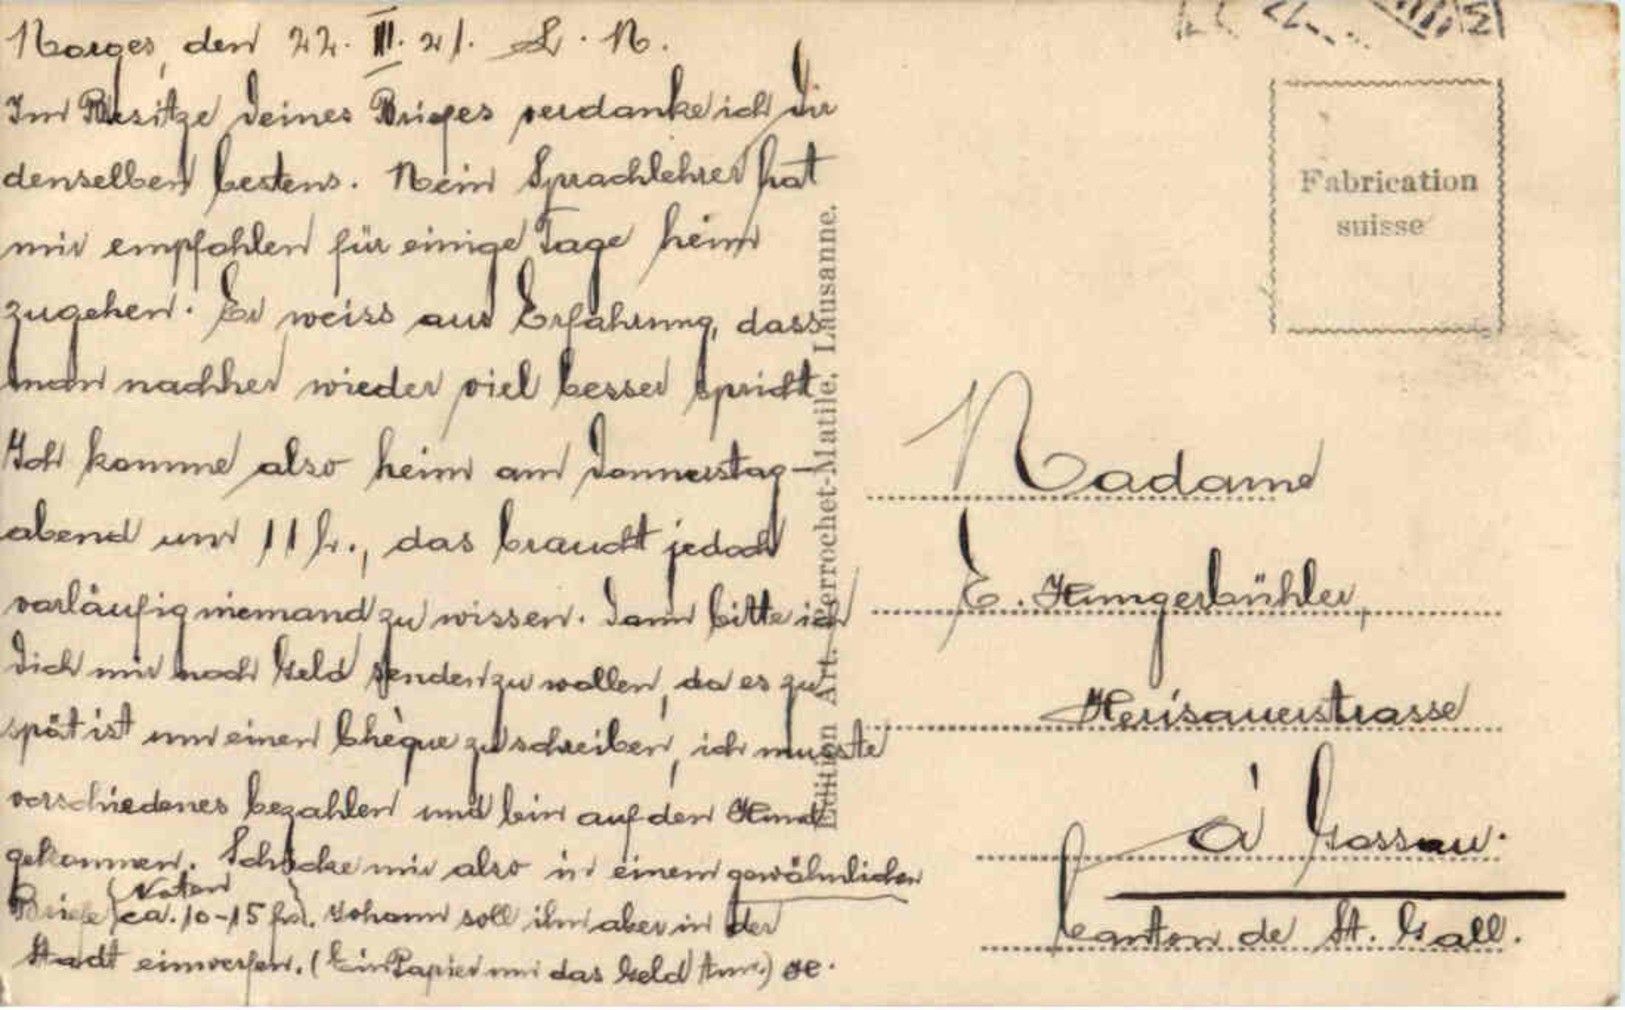 Morges, den 22. III. 21. L. M.
Im Besitze Deines Briefes verdanke ich Dir
denselben bestens. Mein Sprachlehrer hat
mir empfohlen für einige Tage heim
zugehen. Er weiss aus Erfahrung, dass
man nachher wieder viel besser spricht
Ich komme also heim am Donnerstag-
abend um 11 h., das braucht jedoch
vorläufig niemand zu wissen. Dann bitte ich
Dich mir noch Geld senden zu wollen, da es zu
spät ist um einen Chèque zu schreiben, ich musste
verschiedenes bezahlen und bin auf den Hund
gekommen. Schicke mir also in einem gewöhnlichen
Noten
Briefe (ca. 10-15 frs). Johann soll ihn aber in der
Stadt einwerfen. (Ein Papier um das Geld tun.)
Edition Art. Perrochet-Matile, Lausanne.
Fabrication
suisse
Madame
E. Hungerbühler,
Herisauerstrasse
à Gossau.
Canton de St. Gall.